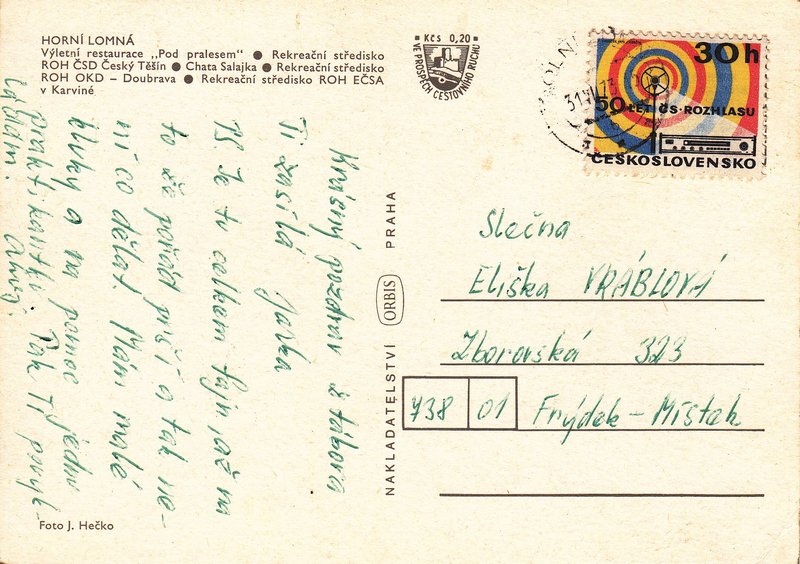 HORNÍ LOMNÁ
Výletní restaurace „Pod pralesem" ● Rekreační středisko
ROH ČSD Český Těšín ● Chata Salajka ● Rekreační středisko
ROH OKD – Doubrava ● Rekreační středisko ROH EČSA
v Karviné
Kčs 0,20
VE PROSPĚCH CESTOVNÍHO RUCHU
30h
50 LET ČS. ROZHLASU
ČESKOSLOVENSKO
Krásný pozdrav z tábora
Ti zasílá Jarka
PS Je tu celkem fajn, až na
to že pořád prší a tak ne-
ní co dělat. Mám malé
kluky a na pomoc jednu
praktikantku. Pak Ti povyk-
ládám. Ahoj.
NAKLADATELSTVÍ ORBIS PRAHA
Slečna
Eliška VRÁBLOVÁ
Zborovská 323
738 01 Frýdek-Místek
Foto J. Hečko